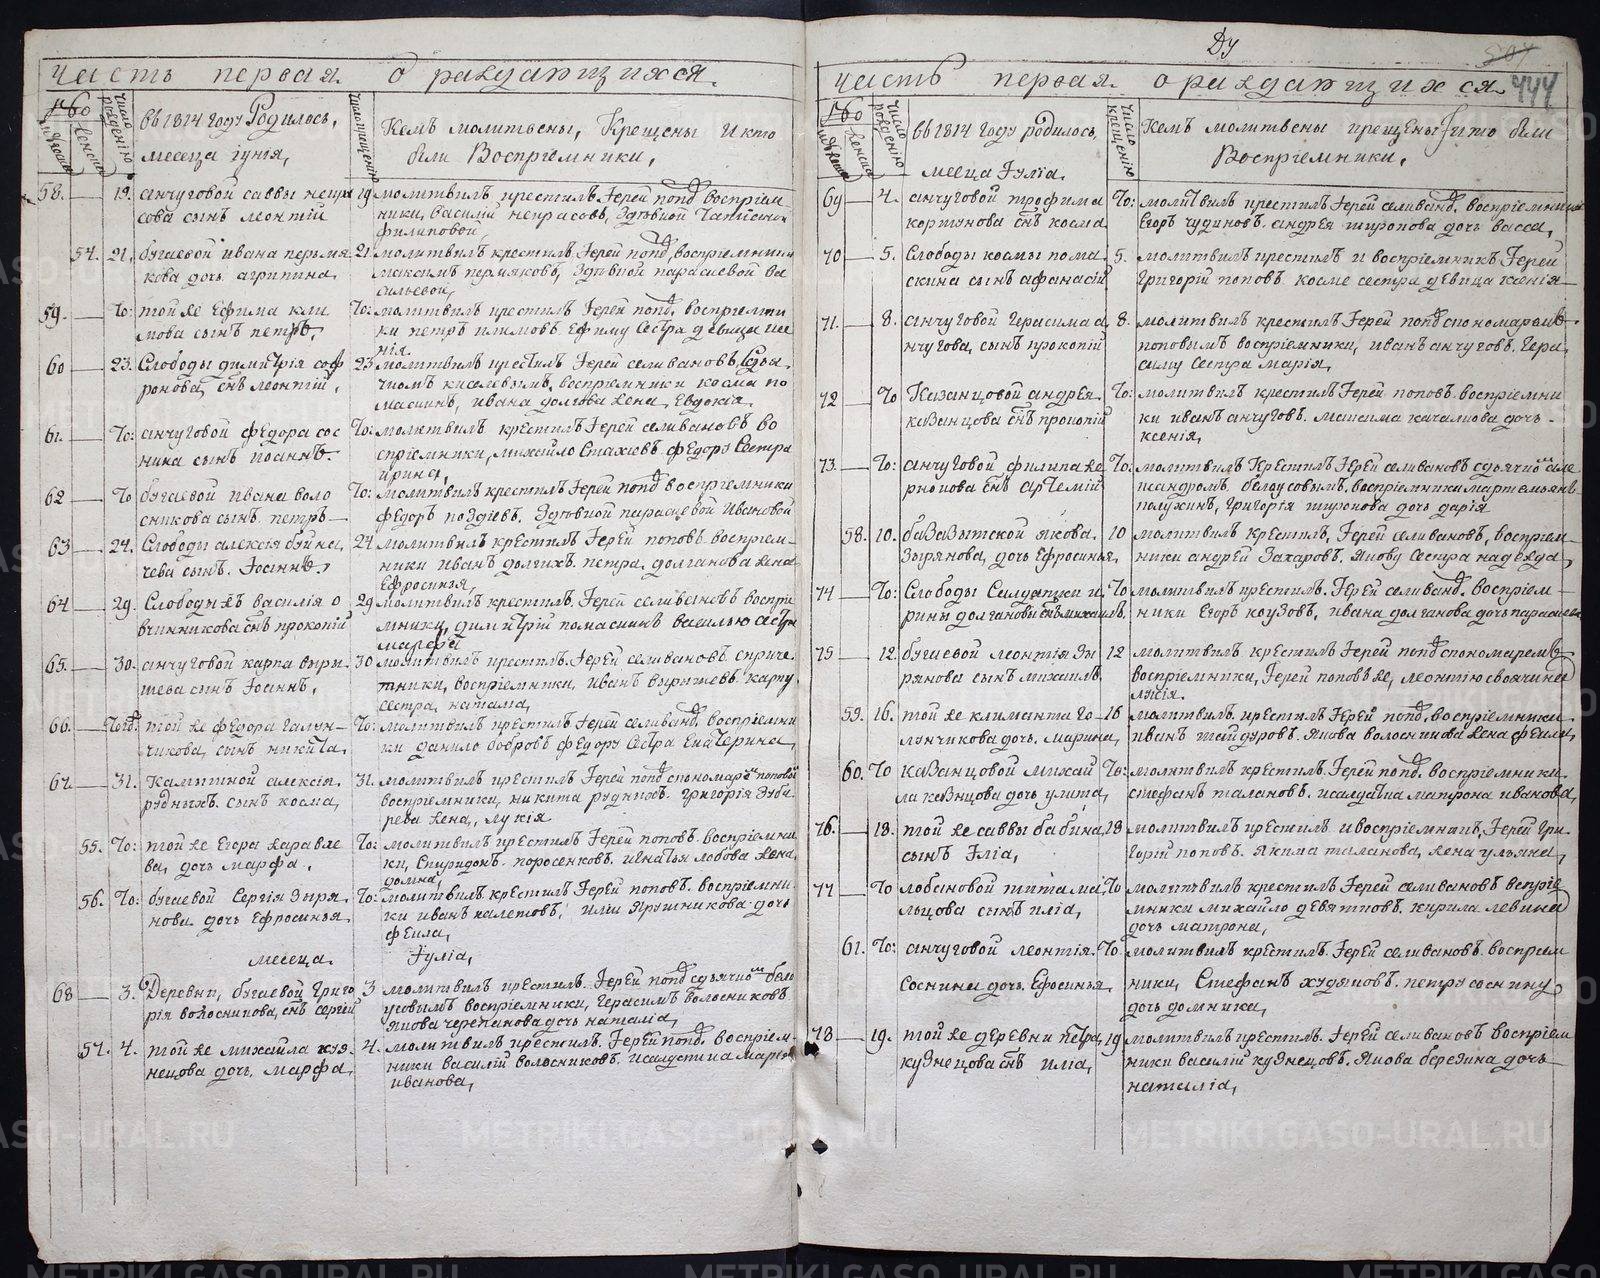 часть первая о раждающихся.
число
въ 1814 году Родилось,
месеца iунiя,
Кемъ молитвены, Крещены и кто
были Восприемники,
58. 19. анчуговой саввы некра
сова сынъ леонтiй
19 молитвилъ крестилъ Iерей попо̂в восприем
ники, василiй некрасовъ,
филиповой,
54. 21. бугаевой ивана пермя
кова дочь агрипина,
21. молитвилъ крестилъ Iерей попо̂в, восприемники
максимъ пермяковъ, парасковой ва
сильевой,
59. то: той же Ефима кли
мова сынъ петръ,
то: молитвилъ крестилъ Iерей попо̂в. восприемни
ки петръ климовъ Ефиму Сестра девица ксе
нiя.
60 23. Слободы димитрiя соф
ронова, снъ леонтiй,
23 молитвилъ крестилъ Iерей селивановъ,
восприемники косма по
маскинъ, ивана жена, Евдокiя.
61. то: анчуговой федора сос
нина сынъ iоаннъ.
то: молитвилъ крестилъ Iерей селивановъ во
сприемники, михайло Стахiевъ федору Сестра
ирина,
62 то бугаевой ивана воло
сникова сынъ петръ
то: молитвилъ крестилъ Iерей попо̂в восприемники
федоръ поздѣевъ. парасковой ивановой
63 24. Слободы алексiя
чева сынъ. Iоаннъ,
24 молитвилъ крестилъ Iерей поповъ восприем
ники иванъ долгихъ. петра, долганова жена
Ефросинья,
64 29. Слободы василiя о
вчинникова снъ прокопiй
29 молитвилъ крестилъ. Iерей селивановъ восприе
мники, димитрiй помаскинъ василью сестра
марфа
65. 30. анчуговой карпа выры
шева сынъ Iоаннъ,
30 молитвилъ крестилъ. Iерей селивановъ
восприемники, иванъ вырышевъ. карпу
сестра, наталiа,
66. той же федора галун
чикова, сынъ никита,
то: молитвилъ крестилъ Iерей селивано̂в, восприемни
ки данило бобровъ федору Сестра Екатерина,
67. 31. Калтыной алексiя
рудныхъ. сынъ косма,
31. молитвилъ крестилъ Iерей попо̂в спономаремъ поповы
восприемники, никита рудныхъ. григорiя зуба
рева жена, лукiя
55. то: той же Егора жаравле
ва, дочь марфа.
то: молитвилъ крестилъ Iерей поповъ. восприемни
ки, Спиридонъ. поросенковъ. игнатья лобова жена,
домна,
56. то: бугаевой Сергiя зыря
нова. дочь Ефросинья.
то: молитвилъ крестилъ Iерей поповъ. восприемни
ки иванъ налетовъ, илiи Ярушникова дочь
феила,
месеца. Iулiа,
68 3. Деревни, бугаевой, григо
рiя волосникова, снъ сергiй
3 молитвилъ крестилъ. Iерей попо̂в сдъячкомъ бело
усовымъ восприемники, герасимъ волосниковъ
Якова черепанова дочь наталiа,
57. 4. той же михайла куз
нецова дочь, марфа,
4. молитвилъ крестилъ. Iерей попо̂в. восприем
ники василiй волосниковъ. исалдатка марья
иванова,
444
часть первая. о раждающихся.
число
въ 1814 году родилось,
месеца Iулiа.
Кемъ молитвены крещены и кто были
Восприемники,
69 4. анчуговой трофима
коргунова снъ косма
то: молитвилъ крестилъ Iерей селивано̂в. восприемники
Егоръ чудиновъ. андрея широкова дочь васса,
70 5. Слободы космы пома
скина сынъ афанасiй
5. молитвилъ крестилъ и восприемникъ Iерей
григорiй поповъ косме сестра девица ксенiя
71. 8. анчуговой герасима а
нчугова, сынъ прокопiй
8. молитвилъ крестилъ Iерей попо̂в спономаремъ
поповымъ восприемники, иванъ анчуговъ. гера
симу Сестра марiя,
72 то Казанцовой андрея
казанцова снъ прокопiй
то: молитвилъ крестилъ Iерей поповъ. восприемни
ки иванъ анчуговъ. максима качалкова дочь
ксенiя,
73. то: анчуговой филипа
снъ артемiй
то: молитвилъ Крестилъ Iерей селивановъ сдъячкомъ але
ксандромъ, белоусовымъ, восприемники мартемьянъ
полухинъ, григорiя широкова дочь дарiя
58. 10. Якова.
Зырянова, дочь Ефросинья,
10 молитвилъ крестилъ, Iерей селивановъ, восприем
ники андрей Захаровъ. Якову Сестра надежда,
74 то: Слободы Салдатки и
рины долгановы снъ михаилъ,
то молитвилъ крестилъ. Iерей селивано̂в. восприем
ники Егоръ коузовъ, ивана долганова дочь парасковья
75 12. бугаевой леонтiя зы
рянова сынъ михаилъ
12 молитвилъ крестилъ Iерей попо̂в спономаремъ
восприемники, Iерей поповъ же, леонтiю своячина
лукiя.
59. 16. той же климанта га
лунчикова дочь. марина,
16 молитвилъ. крестилъ Iерей попо̂в. восприемники
иванъ шайдуровъ. Якова волосникова жена феила,
60. то казанцовой михай
ла казнцова дочь улита,
то: молитвилъ крестилъ. Iерей попо̂в. восприемники.
стефанъ талановъ. исалдатка матрона иванова,
76. 18. той же саввы бабина,
сынъ Iлiа,
18 молитвилъ крестилъ ивосприемникъ, Iерей гри
горiй поповъ. Якима таланова, жена ульяна,
77 то лобановой
льцова сынъ илiа,
то молитвилъ крестилъ Iерей селивановъ восприе
мники михайло девятковъ. кирила левина
дочь матрона,
61. то: анчуговой леонтiя.
Соснина дочь, Ефросинья,
то молитвилъ крестилъ. Iерей селивановъ. восприем
ники, Стефанъ худяковъ. петру соснину
дочь домника,
78 19. той же деревни петра,
кузнецова снъ илiа,
19 молитвилъ крестилъ. Iерей селивановъ восприем
ники василiй кузнецовъ. Якова березина дочь
наталiа,
METRIKI.GASO-URAL.RU